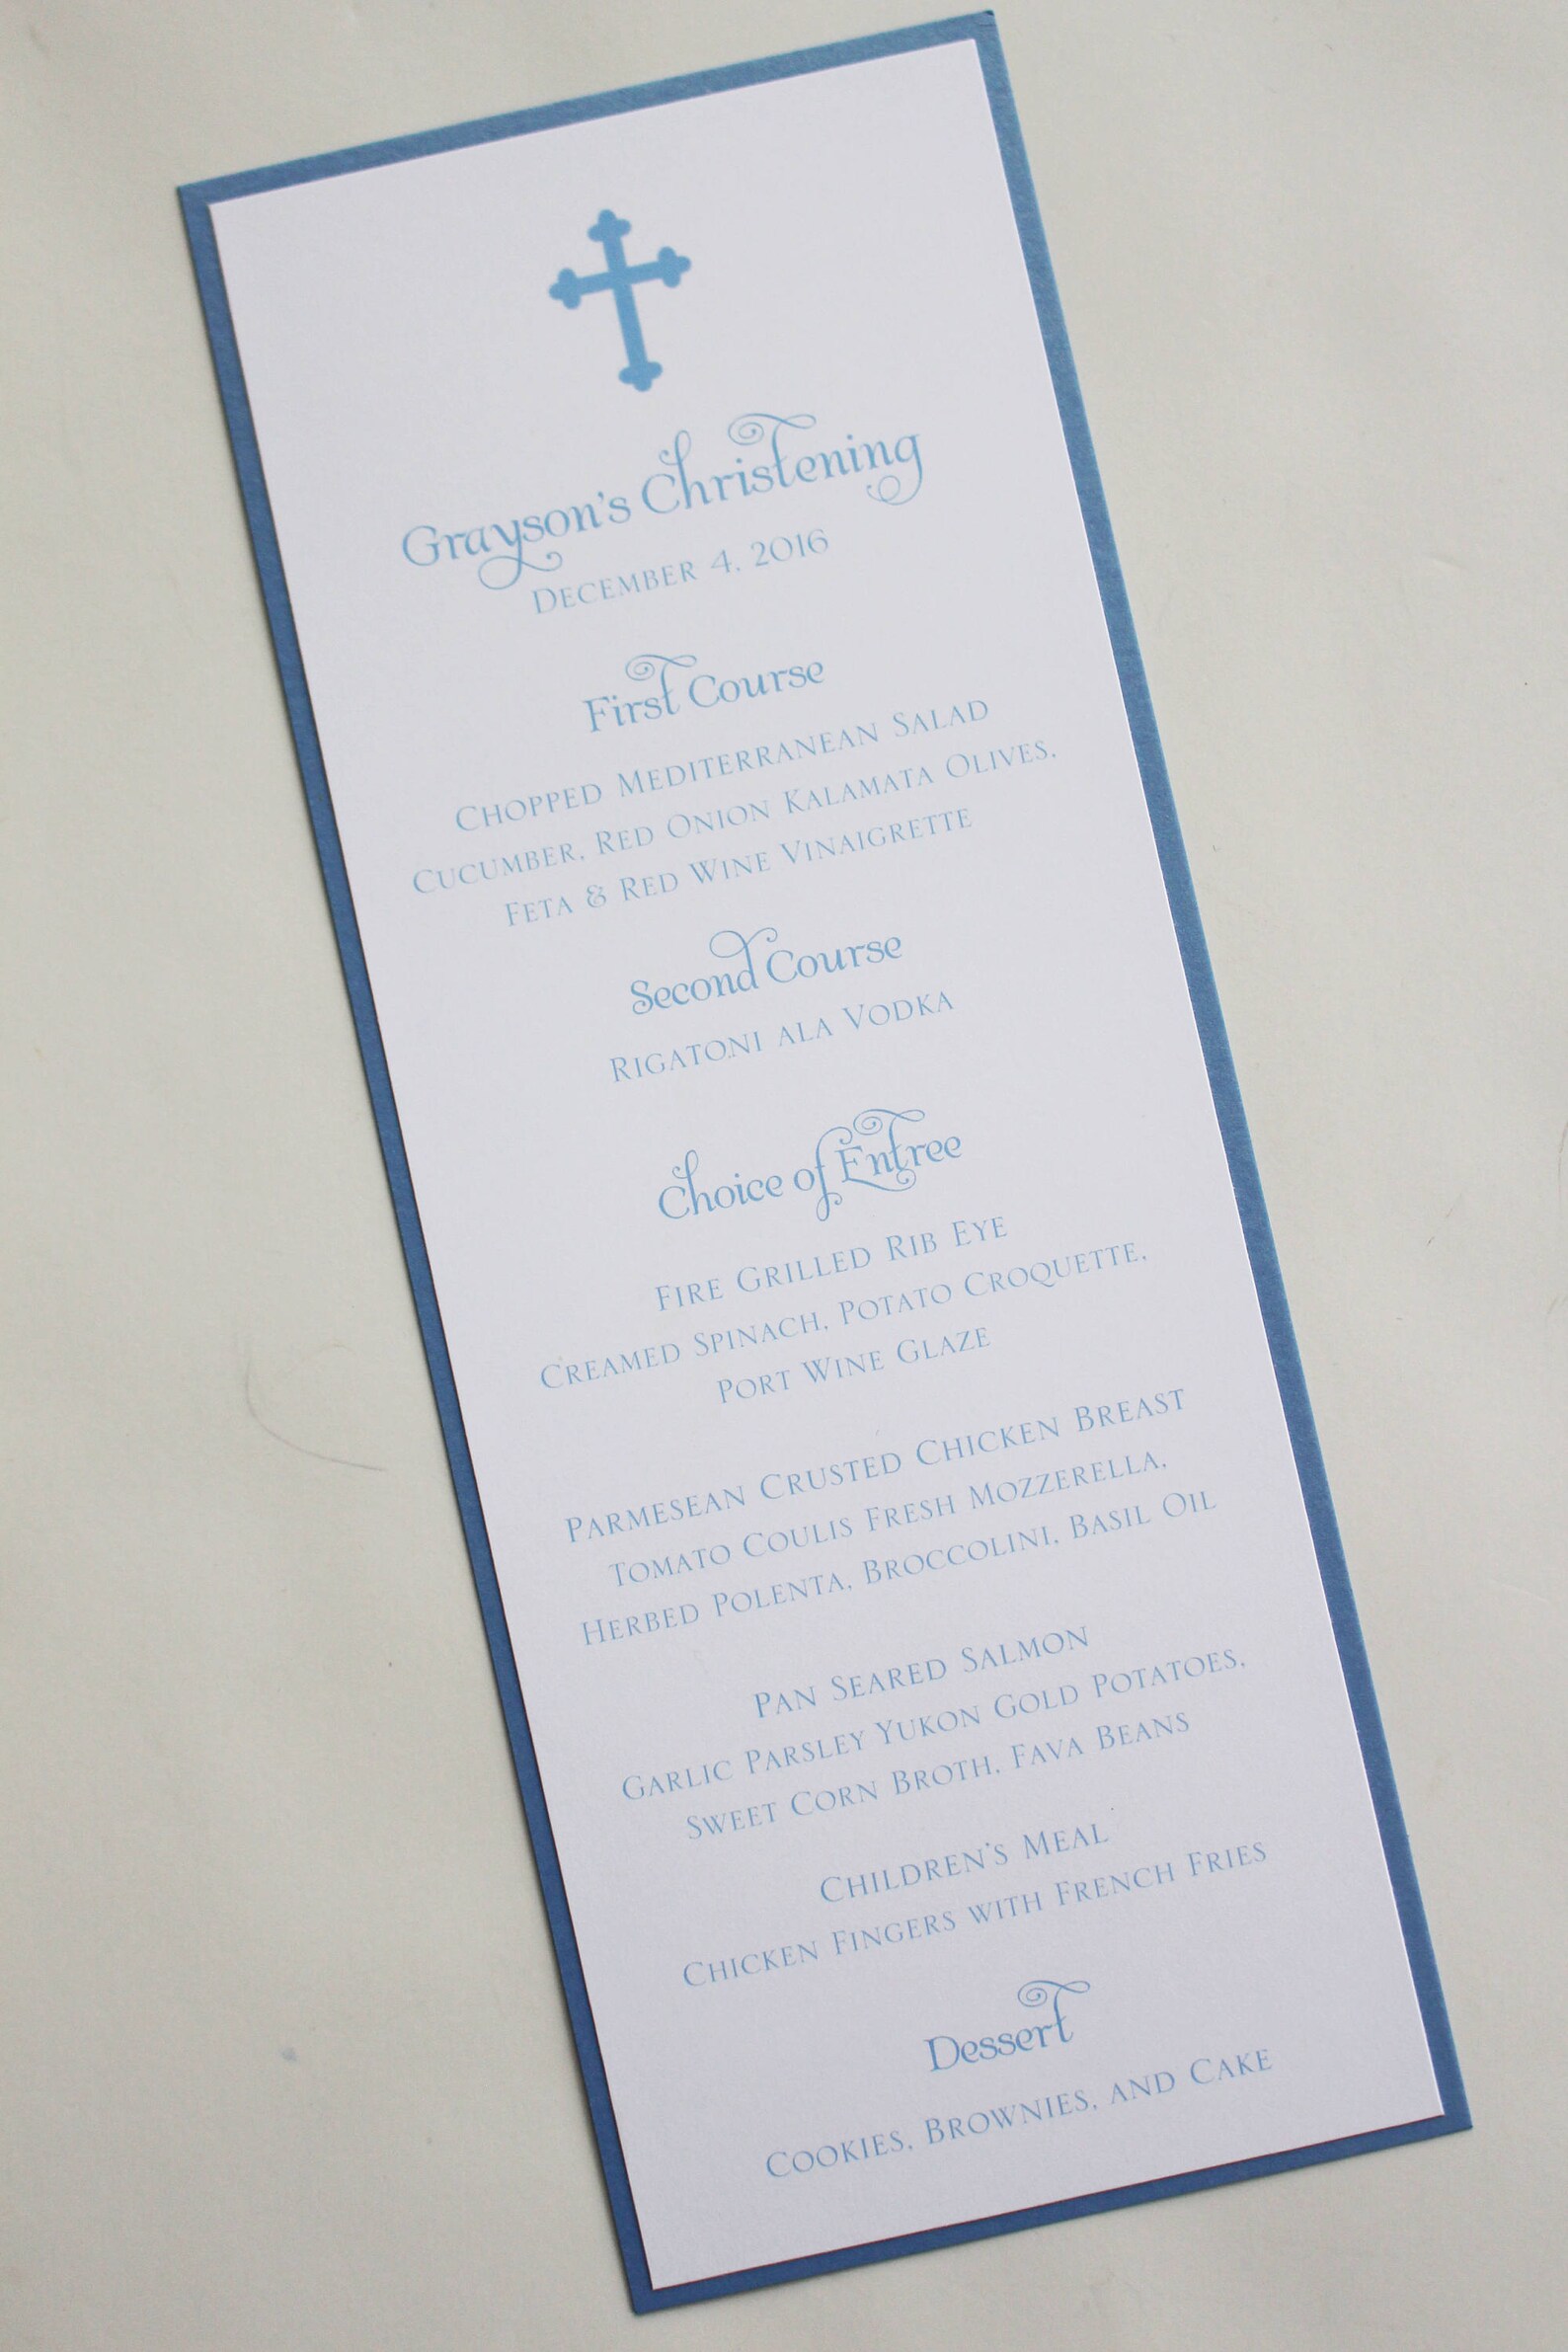 Grayson's Christening
December 4, 2016
First Course
Chopped Mediterranean Salad
Cucumber, Red Onion Kalamata Olives,
Feta & Red Wine Vinaigrette
Second Course
Rigatoni ala Vodka
Choice of Entree
Fire Grilled Rib Eye
Creamed Spinach, Potato Croquette,
Port Wine Glaze
Parmesean Crusted Chicken Breast
Tomato Coulis Fresh Mozzerella,
Herbed Polenta, Broccolini, Basil Oil
Pan Seared Salmon
Garlic Parsley Yukon Gold Potatoes,
Sweet Corn Broth, Fava Beans
Children's Meal
Chicken Fingers with French Fries
Dessert
Cookies, Brownies, and Cake